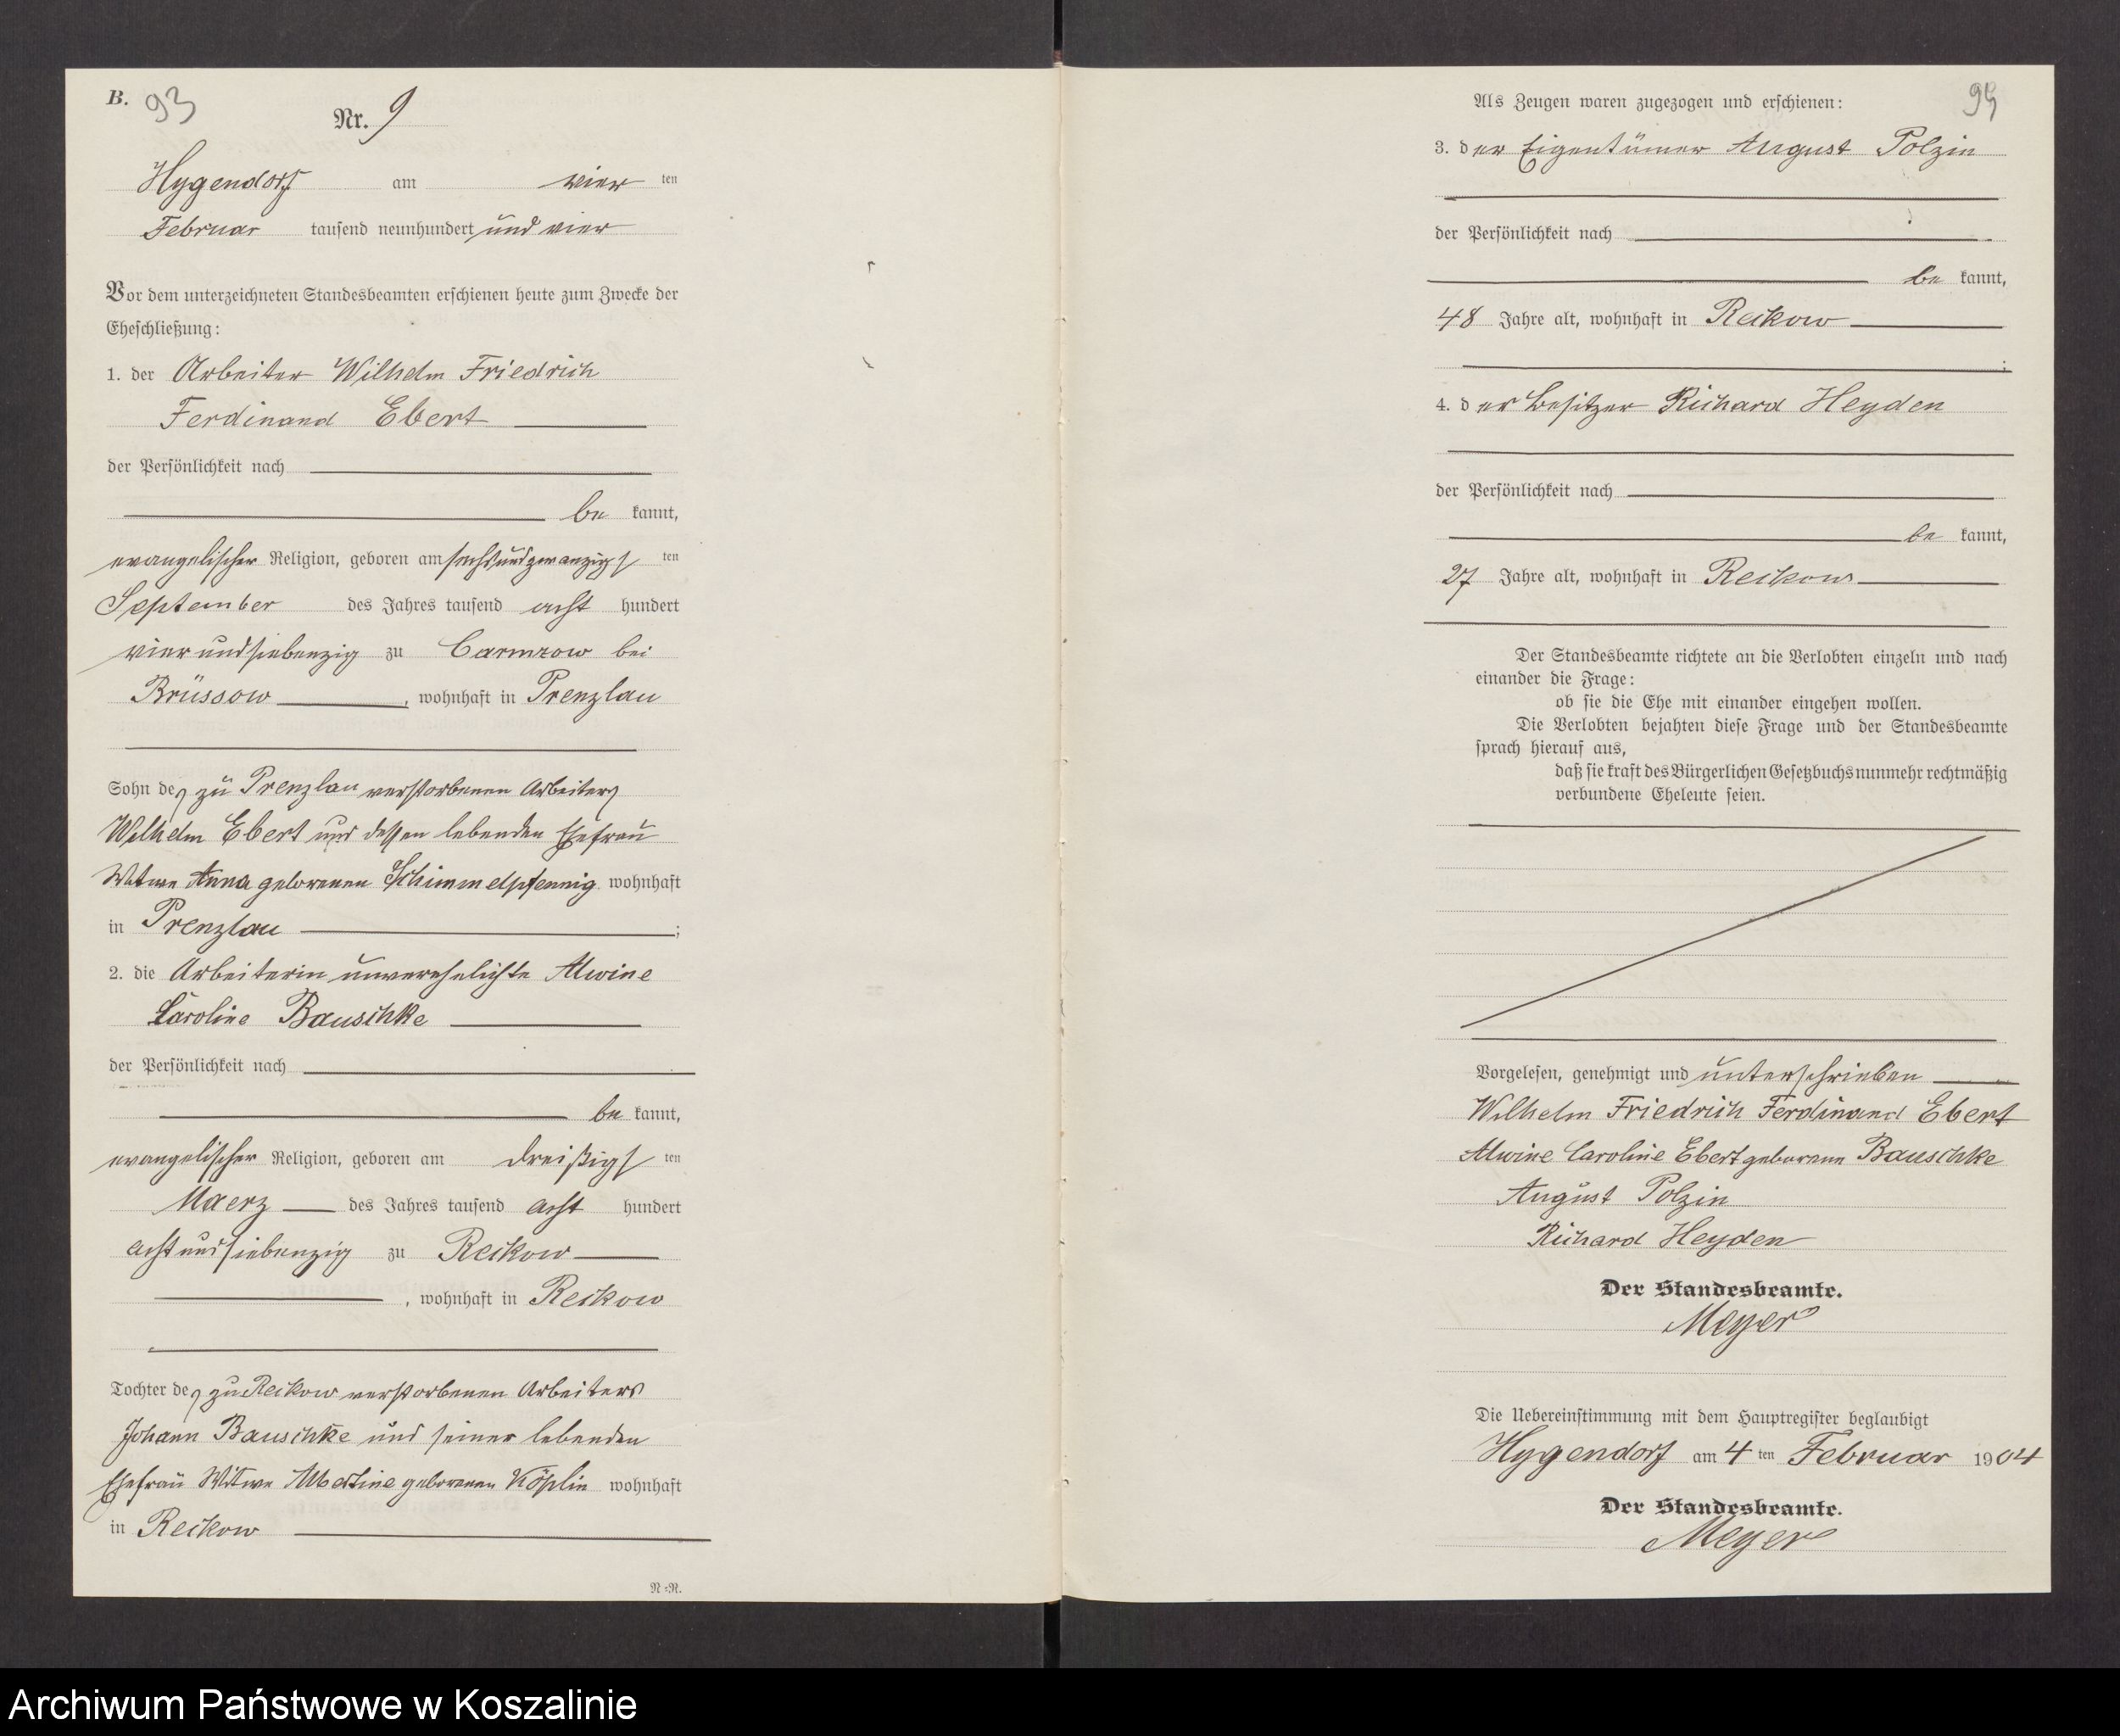 B. 93
Nr. 9
Hygendorf am vier ten
Februar tausend neunhundert und vier
Vor dem unterzeichneten Standesbeamten erschienen heute zum Zwecke der
Eheschließung:
1. der Arbeiter Wilhelm Friedrich
Ferdinand Ebert
der Persönlichkeit nach
be kannt,
evangelischer Religion, geboren am sechsundzwanzigs ten
September des Jahres tausend acht hundert
vierundsiebenzig zu Carmzow bei
Brüssow, wohnhaft in Prenzlau
Sohn des zu Prenzlau verstorbenen Arbeiters
Wilhelm Ebert und dessen lebenden Ehefrau
Witwe Anna geborenen Schimmelpfennig wohnhaft
in Prenzlau ;
2. die Arbeiterin unverehelichte Alwine
Caroline Bauschke
der Persönlichkeit nach
be kannt,
evangelischer Religion, geboren am dreißigs ten
Maerz des Jahres tausend acht hundert
achtundsiebenzig zu Reikow
, wohnhaft in Reikow
Tochter des zu Reikow verstorbenen Arbeiters
Johann Bauschke und seiner lebenden
Ehefrau Witwe Albertine geborenen Köplin wohnhaft
in Reikow
N-N.
Als Zeugen waren zugezogen und erschienen: 94
3. der Eigentümer August Polzin
der Persönlichkeit nach
be kannt,
48 Jahre alt, wohnhaft in Reikow
;
4. der Besitzer Richard Heyden
der Persönlichkeit nach
be kannt,
27 Jahre alt, wohnhaft in Reikow
Der Standesbeamte richtete an die Verlobten einzeln und nach
einander die Frage:
ob sie die Ehe mit einander eingehen wollen.
Die Verlobten bejahten diese Frage und der Standesbeamte
sprach hierauf aus,
daß sie kraft des Bürgerlichen Gesetzbuchs nunmehr rechtmäßig
verbundene Eheleute seien.
Vorgelesen, genehmigt und unterschrieben
Wilhelm Friedrich Ferdinand Ebert
Alwine Caroline Ebert geborene Bauschke
August Polzin
Richard Heyden
Der Standesbeamte.
Meyer
Die Uebereinstimmung mit dem Hauptregister beglaubigt
Hygendorf am 4 ten Februar 1904
Der Standesbeamte.
Meyer
Archiwum Państwowe w Koszalinie